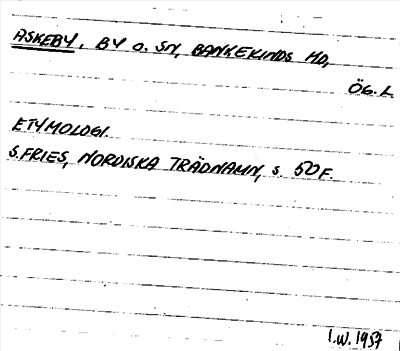 ASKEBY, BY O. SN, BANKEKINDS HD,
ÖG. L.
ETYMOLOGI.
S. FRIES, NORDISKA TRÄDNAMN, S. 50 F.
I.W. 1957